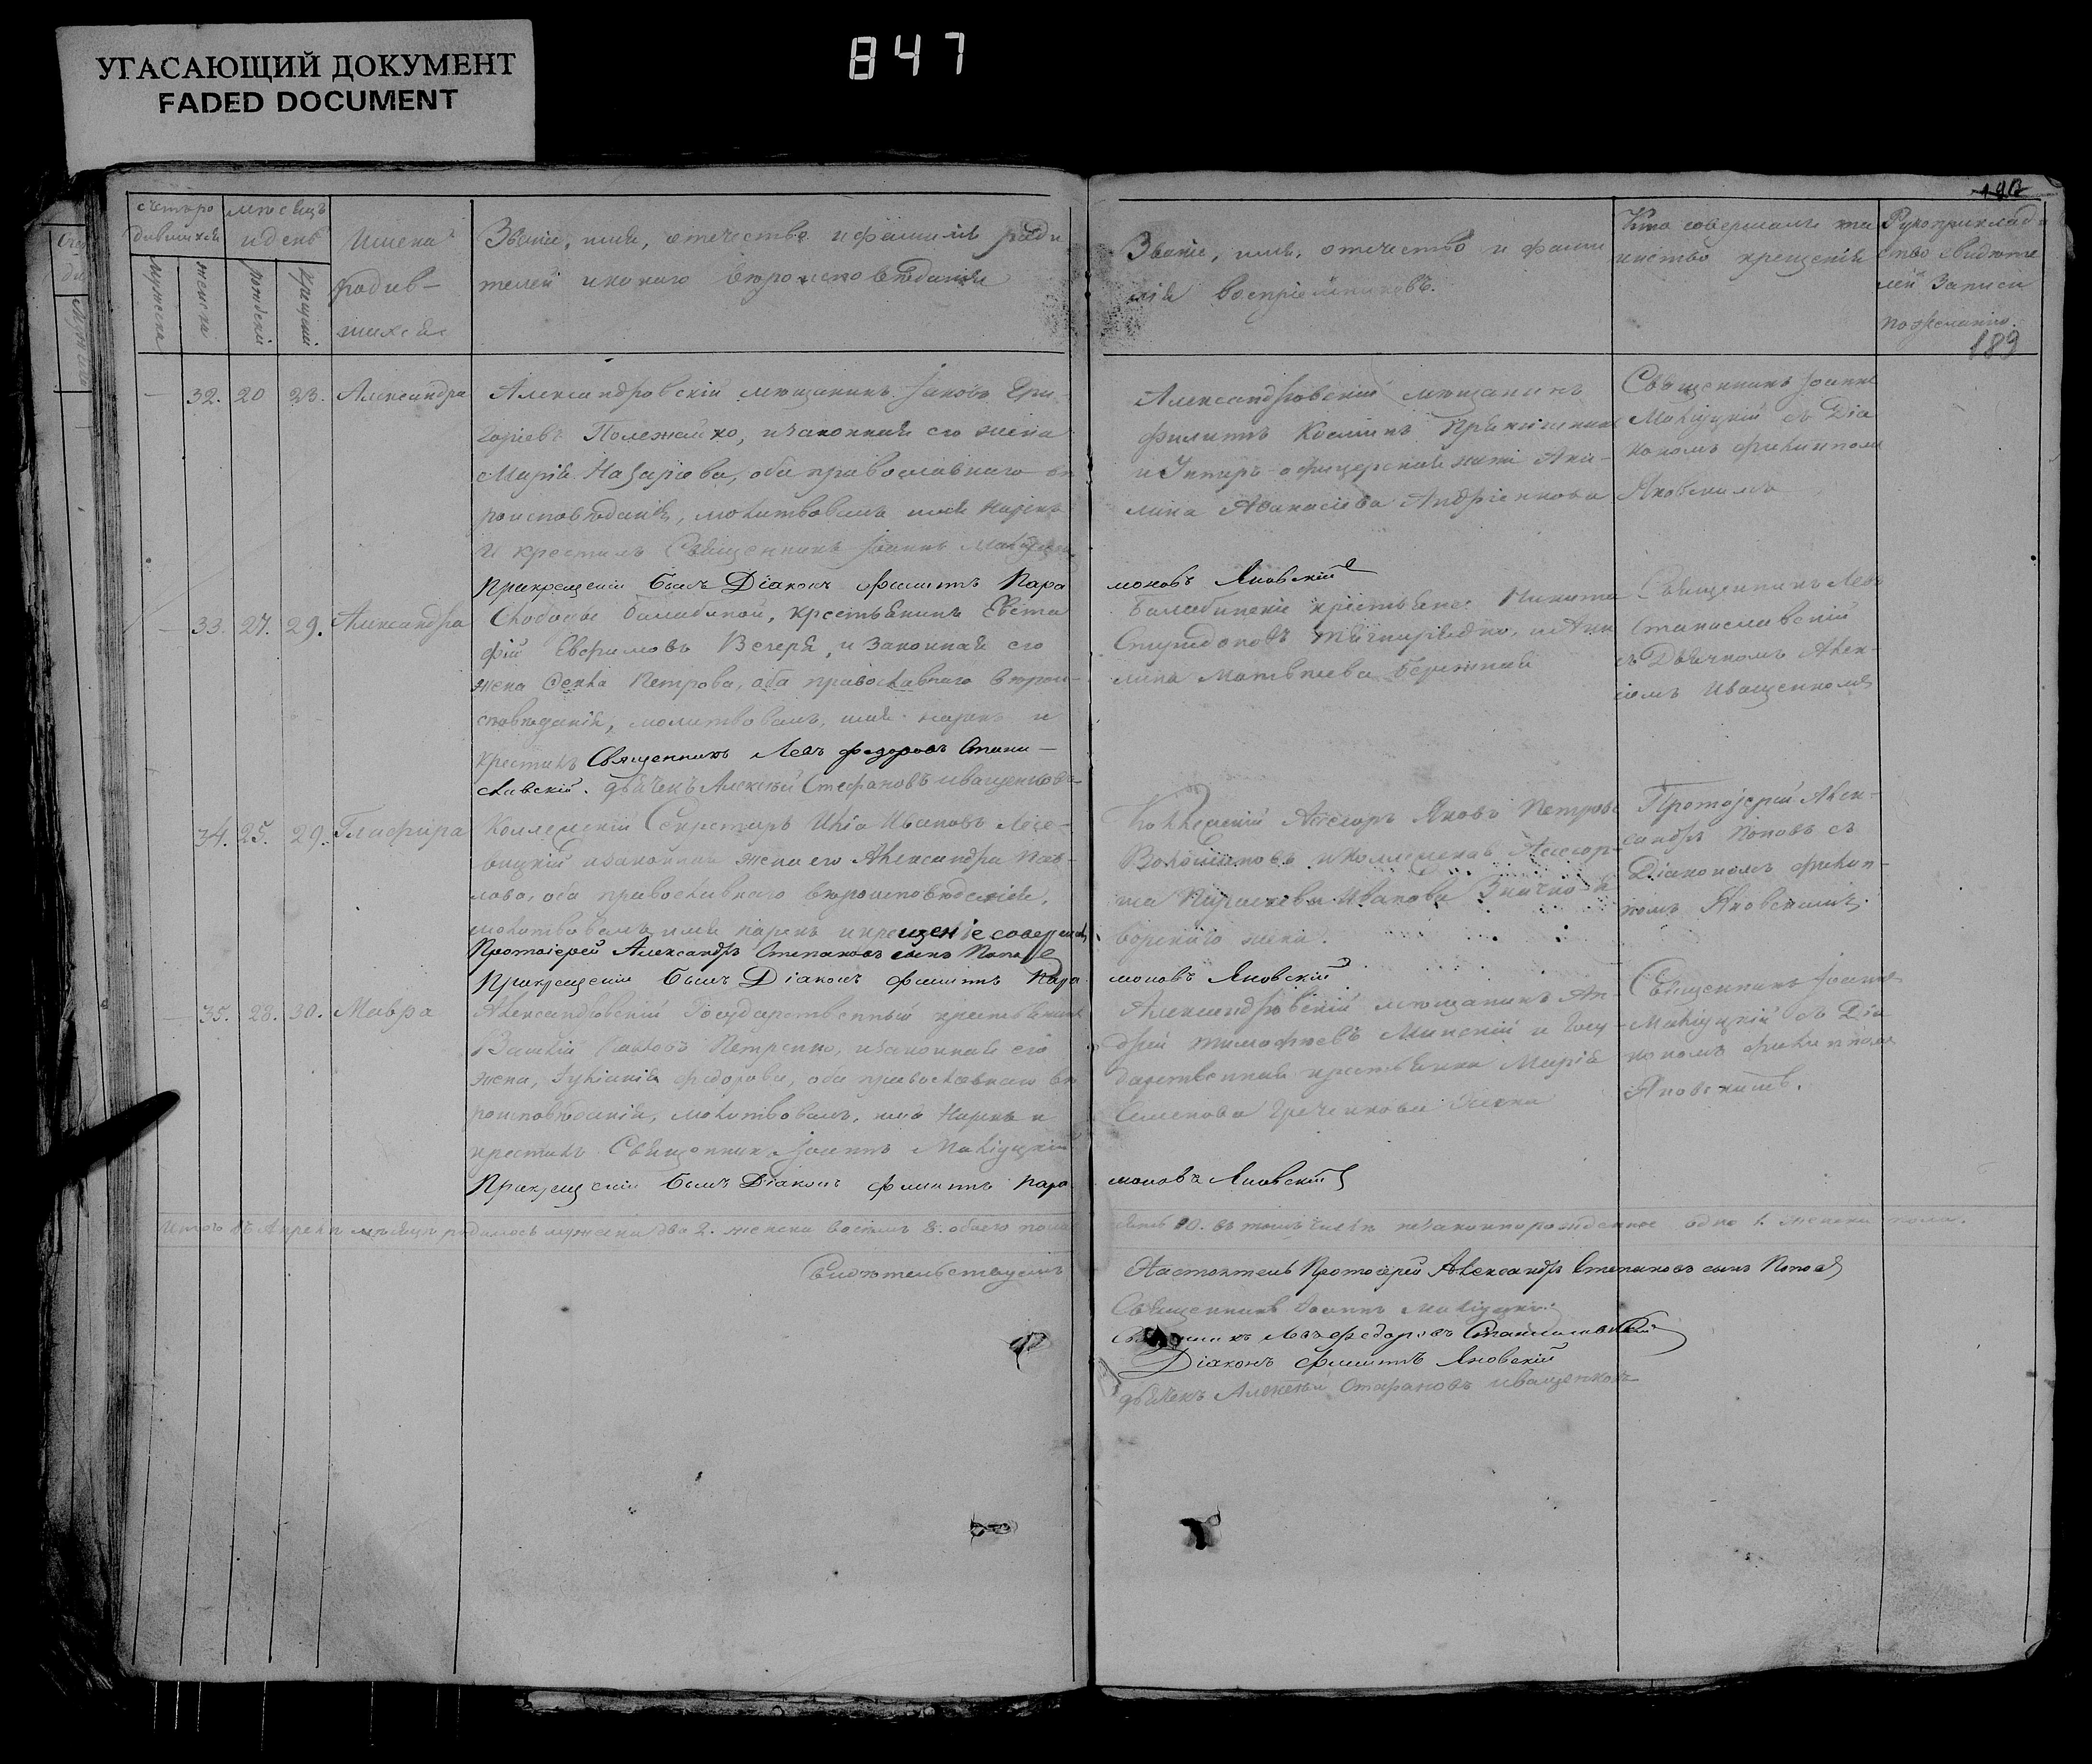 УГАСАЮЩИЙ ДОКУМЕНТ
FADED DOCUMENT
847
190
189
счетъ ро
дившихся
мѣсяцъ
и день
Имена
родив-
шихся
Званіе, имя, отечество и фамилія роди
телей и какого вѣроисповѣданія
мужеска
женска
рожденія
крещенія.
Званіе, имя, отечество и фами
лія воспріемниковъ.
Кто совершалъ та
инство крещенія
Рукоприклад
ство свидѣте
лей записи
по желанію.
32. 20 23. Александра
Александровскій мѣщанинъ Іаковъ Гри-
горіевъ Полежайко, и законная его жена
Марія Назаріева, оба православнаго вѣ
роисповѣданія, молитвовалъ имя нарекъ
и крестилъ Священникъ Іоаннъ
При крещеніи былъ Діаконъ Филиппъ Пара
моновъ Яновскій
Александровскій мѣщанинъ
Филиппъ Косминъ
и Унтеръ-офицерская жена Аки-
лина Афанасіева Андріенкова
Священникъ Іоаннъ
съ Діа
кономъ Филиппомъ
Яновскимъ
33. 27. 29. Александра
Слободы Балабиной, крестьянинъ Евста
фій Евфимовъ Вечеря, и законная его
жена Фекла Петрова, оба православнаго вѣрои-
сповѣданія, молитвовалъ, имя нарекъ и
крестилъ Священникъ Левъ Федоровъ Стани-
славскій. Дьячекъ Алексѣй Стефановъ Иващенковъ
Балабинскіе крестьяне Никита
Спиридоновъ и Аки
лина Матвѣева Бережная
Священникъ Левъ
Станиславскій
съ Дьячкомъ Алек-
сіемъ Иващенкомъ
34. 25. 29. Глафира
Коллежскій Секретарь Илія Ивановъ
и законная жена его Александра Пав-
лова, оба православнаго вѣроисповѣданія,
молитвовалъ имя нарекъ и крещеніе совершалъ
Протоіерей Александръ Степановъ сынъ Поповъ
При крещеніи былъ Діаконъ Филиппъ Пара
моновъ Яновскій
Коллежскій Ассесоръ Яковъ Петровъ
и Коллежскаго Ассесор-
Параскева Иванова
жена.
Протоіерей Алек-
сандръ Поповъ съ
Діакономъ Филип-
помъ Яновскимъ.
35. 28. 30. Мавра
Александровскій Государственный крестьянинъ
Василій Павловъ Петренко, и законная его
жена, Іуліанія Федорова, оба православнаго вѣ
роисповѣданія, молитвовалъ, имя нарекъ и
крестилъ Священникъ Іоаннъ
При крещеніи былъ Діаконъ Филиппъ Пара
моновъ Яновскій
Александровскій мѣщанинъ Ан-
дрей Тимофѣевъ Минскій и Госу-
дарственная крестьянка Марія
Семенова жена
Священникъ Іоаннъ
съ Діа-
кономъ Филиппомъ
Яновскимъ.
Итого въ Апрелѣ мѣсяцѣ родилось мужеска два 2. женска восемь 8. обоего пола
десять 10. въ томъ числѣ незаконнорожденное одно 1. женска пола.
Свидѣтельствуемъ
Настоятель Протоіерей Александръ Степановъ сынъ Поповъ
Священникъ Іоаннъ
Священникъ Левъ Федоровъ Станиславскій
Діаконъ Филиппъ Яновскій
Дьячекъ Алексѣй Стефановъ Иващенковъ